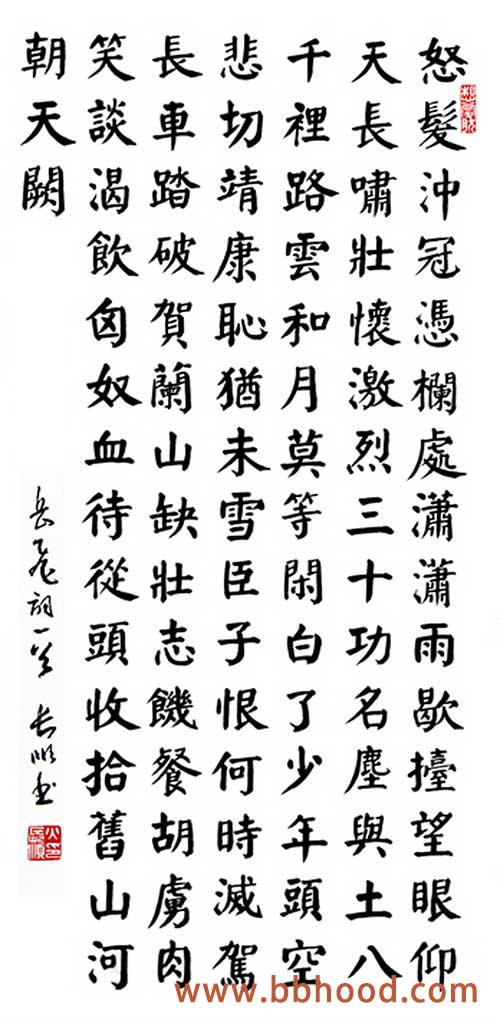 怒髮沖冠憑欄處瀟瀟雨歇擡望眼仰
天長嘯壯懷激烈三十功名塵與土八
千裡路雲和月莫等閑白了少年頭空
悲切靖康恥猶未雪臣子恨何時滅駕
長車踏破賀蘭山缺壯志饑餐胡虜肉
笑談渴飲匈奴血待從頭收拾舊山河
朝天闕
岳飛詞一首 長 書
www.bbhood.com